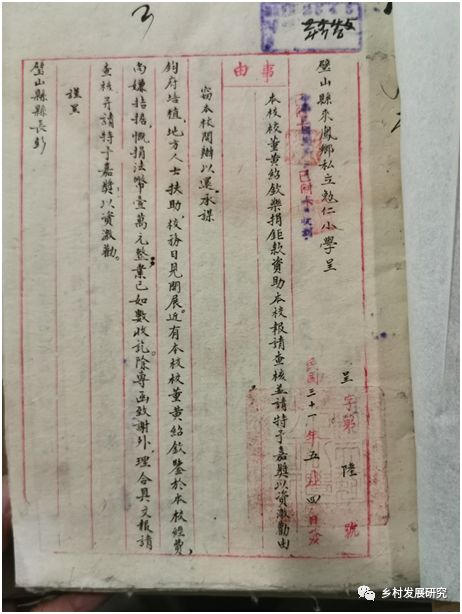 璧山縣來鳳鄉私立勉仁小學呈
呈字第陸號
民國三十一年五月四日發
事由
本校校董黃紹欽樂捐鉅款資助本校報請查核並請特予嘉獎以資激勸由
竊本校開辦以還承謀
鈞府培植，地方人士扶助，校務日見開展。近有本校校董黃紹欽鑒於本校經費，
尚嫌拮据，慨捐法幣壹萬元整，業已如數收訖。除專函致謝外，理合具文報請
查核，并請特予嘉獎，以資激勸。
謹呈
璧山縣縣長彭
乡村发展研究